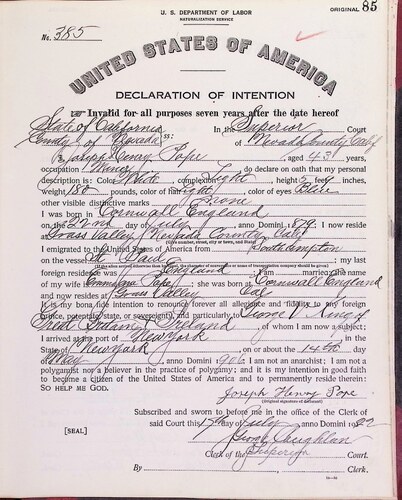 U. S. DEPARTMENT OF LABOR
NATURALIZATION SERVICE
ORIGINAL 85
No. 385
UNITED STATES OF AMERICA
DECLARATION OF INTENTION
Invalid for all purposes seven years after the date hereof
State of California
County of Nevada ss: In the Superior Court
of Nevada County Calif
I, Joseph Henry Pope, aged 43 years,
occupation Miner, do declare on oath that my personal
description is: Color White, complexion Light, height 5 feet inches,
weight 180 pounds, color of hair Light, color of eyes Blue
other visible distinctive marks None
I was born in Cornwall England
on the 22nd day of July, anno Domini 1879; I now reside
at Grass Valley, Nevada County, Calif
(Give number, street, city or town, and State.)
I emigrated to the United States of America from Southampton
on the vessel St Paul; my last
foreign residence was England; I am married; the name
of my wife is Pope; she was born at Cornwall England
and now resides at Grass Valley Cal
It is my bona fide intention to renounce forever all allegiance and fidelity to any foreign
prince, potentate, state, or sovereignty, and particularly to George V King of
Great Britain & Ireland, of whom I am now a subject;
I arrived at the port of New York, in the
State of New York, on or about the 14th day
of May, anno Domini 1906; I am not an anarchist; I am not a
polygamist nor a believer in the practice of polygamy; and it is my intention in good faith
to become a citizen of the United States of America and to permanently reside therein:
SO HELP ME GOD.
Joseph Henry Pope
(Original signature of declarant.)
Subscribed and sworn to before me in the office of the Clerk of
[SEAL] said Court this 17th day of July, anno Domini 1922
Clerk of the Superior Court.
By , Clerk.